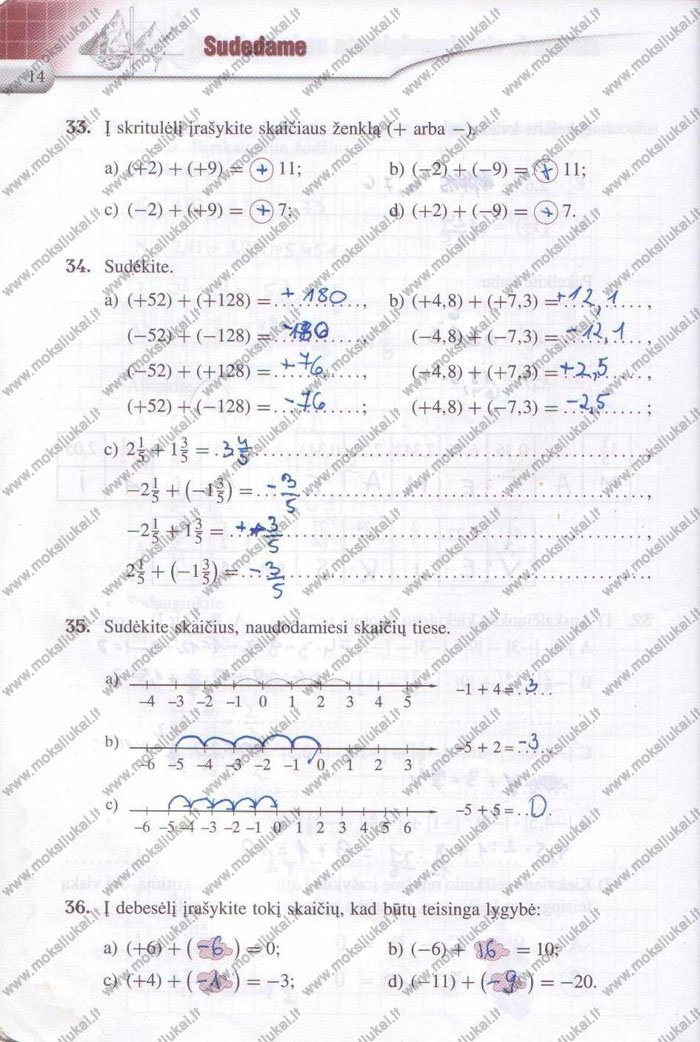 14
Sudedame
33. Į skritulėlį įrašykite skaičiaus ženklą (+ arba −).
a) (+2) + (+9) = + 11; b) (−2) + (−9) = + 11;
c) (−2) + (+9) = + 7; d) (+2) + (−9) = + 7.
34. Sudėkite.
a) (+52) + (+128) = +180, b) (+4,8) + (+7,3) = +12,1,
(−52) + (−128) = −180, (−4,8) + (−7,3) = −12,1,
(−52) + (+128) = +76, (−4,8) + (+7,3) = +2,5,
(+52) + (−128) = −76; (+4,8) + (−7,3) = −2,5;
c) 2 1/5 + 1 3/5 = 3 4/5,
−2 1/5 + (−1 3/5) = −3/5,
−2 1/5 + 1 3/5 = + 3/5,
2 1/5 + (−1 3/5) = −3/5
35. Sudėkite skaičius, naudodamiesi skaičių tiese.
a) −4 −3 −2 −1 0 1 2 3 4 5 −1 + 4 = 3
b) −6 −5 −4 −3 −2 −1 0 1 2 3 −5 + 2 = −3
c) −6 −5 −4 −3 −2 −1 0 1 2 3 4 5 6 −5 + 5 = 0
36. Į debesėlį įrašykite tokį skaičių, kad būtų teisinga lygybė:
a) (+6) + (−6) = 0; b) (−6) + 16 = 10;
c) (+4) + (−1) = −3; d) (−11) + (−9) = −20.
www.moksliukai.lt